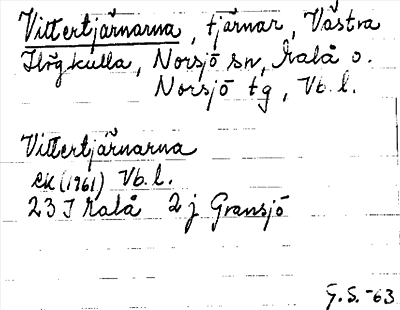 Vittertjärnarna, tjärnar, Västra
Högkulla, Norsjö sn, Malå o.
Norsjö tg, Vb. l.
Vittertjärnarna
ek (1961) Vb. l.
23 J Malå 2 j Gransjö
G. S. -63